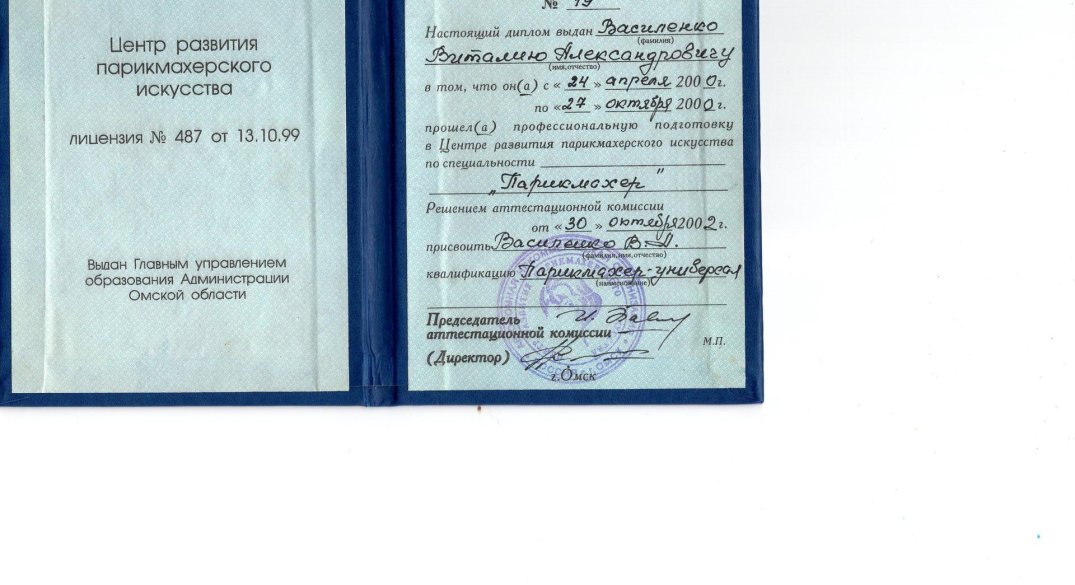 Центр развития
парикмахерского
искусства
лицензия № 487 от 13.10.99
Выдан Главным управлением
образования Администрации
Омской области
№ 19
Настоящий диплом выдан Василенко
(фамилия)
Виталию Александровичу
(имя, отчество)
в том, что он(а) с «24» апреля 2000г.
по «27» октября 2000г.
прошел(а) профессиональную подготовку
в Центре развития парикмахерского искусства
по специальности
„Парикмахер"
Решением аттестационной комиссии
от «30» октября 2002г.
присвоить Василенко В.А.
(фамилия, имя, отчество)
квалификацию Парикмахер-универсал
(наименование)
Председатель
аттестационной комиссии
М.П.
(Директор)
г.Омск